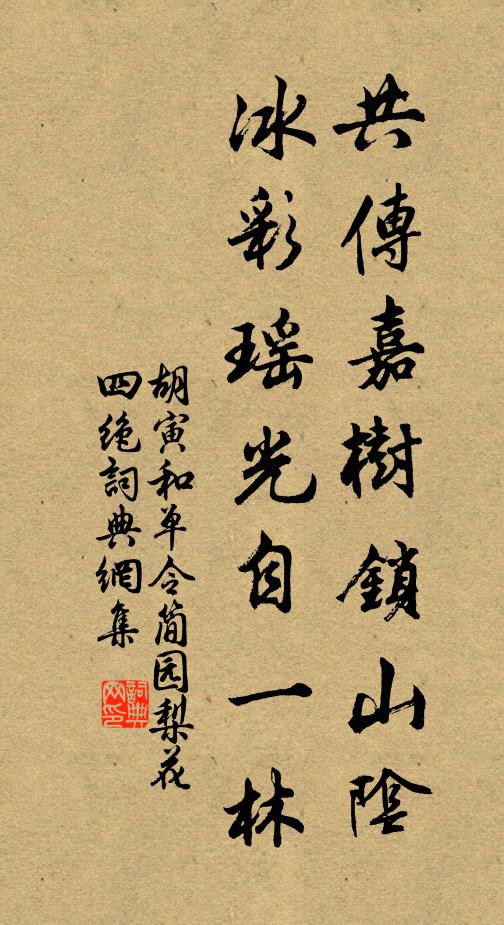 共傳嘉樹鎖山陰
冰彩瑶光自一林
胡寅和单令简园梨花
四絶詞典網集
詞典网印